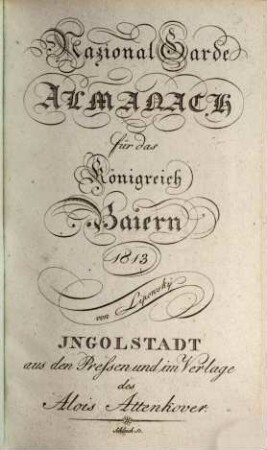 Nazional Garde
ALMANACH
für das
Königreich
Baiern
1813
von Lipowsky
JNGOLSTADT
aus den Preſsen und im Verlage
des
Alois Attenkover.